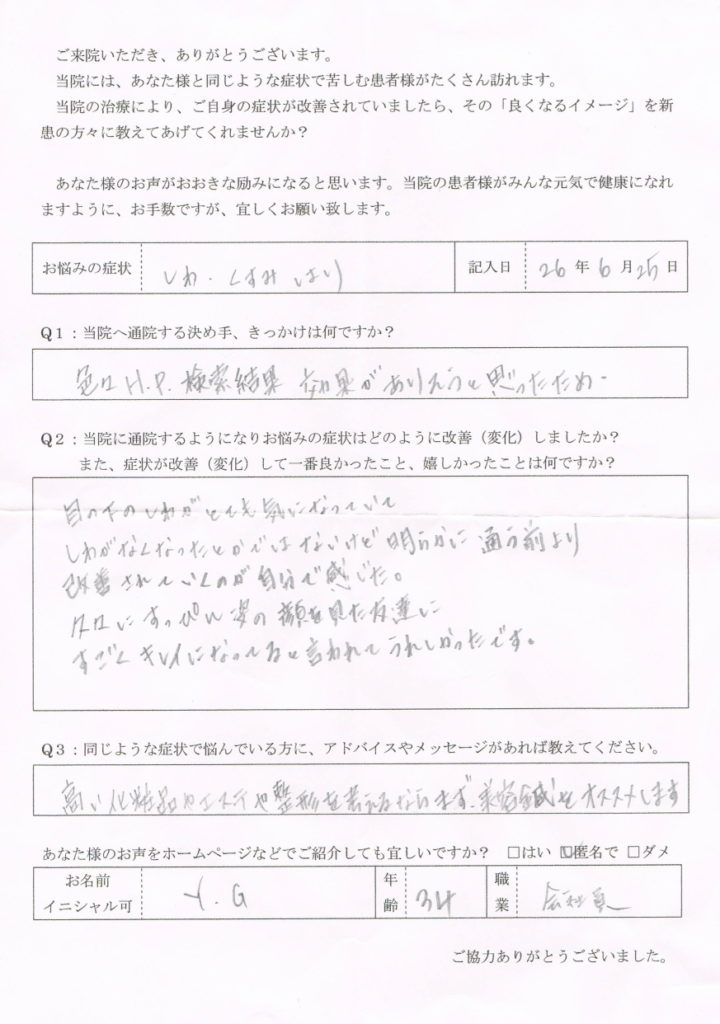 ご来院いただき、ありがとうございます。
当院には、あなた様と同じような症状で苦しむ患者様がたくさん訪れます。
当院の治療により、ご自身の症状が改善されていましたら、その「良くなるイメージ」を新
患の方々に教えてあげてくれませんか？
あなた様のお声がおおきな励みになると思います。当院の患者様がみんな元気で健康になれ
ますように、お手数ですが、宜しくお願い致します。
お悩みの症状 しわ・くすみ 記入日 26 年 6 月 25 日
Q1：当院へ通院する決め手、きっかけは何ですか？
色々H.P.検索結果 効果がありそうと思ったため
Q2：当院に通院するようになりお悩みの症状はどのように改善（変化）しましたか？
また、症状が改善（変化）して一番良かったこと、嬉しかったことは何ですか？
目の下のしわがとても気になっていて
しわがなくなったとかではないけど明らかに通う前より
改善されていくのが自分で感じた。
久々にすっぴん姿の顔を見た友達に
すごくキレイになってると言われてうれしかったです。
Q3：同じような症状で悩んでいる方に、アドバイスやメッセージがあれば教えてください。
高い化粧品やエステや整形を考えるならまず、美容鍼をオススメします
あなた様のお声をホームページなどでご紹介しても宜しいですか？ □はい ☑匿名で □ダメ
お名前 イニシャル可 Y.G 年齢 34 職業 会社員
ご協力ありがとうございました。